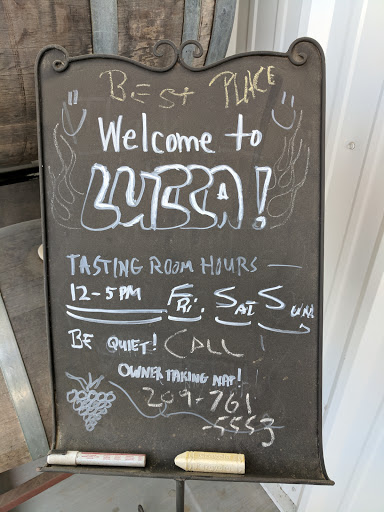 BEST PLACE
Welcome to
LUCCA!
TASTING ROOM HOURS —
12-5PM FRI. SAT SUN
BE QUIET! CALL!
OWNER TAKING NAP!
209-761
-5553